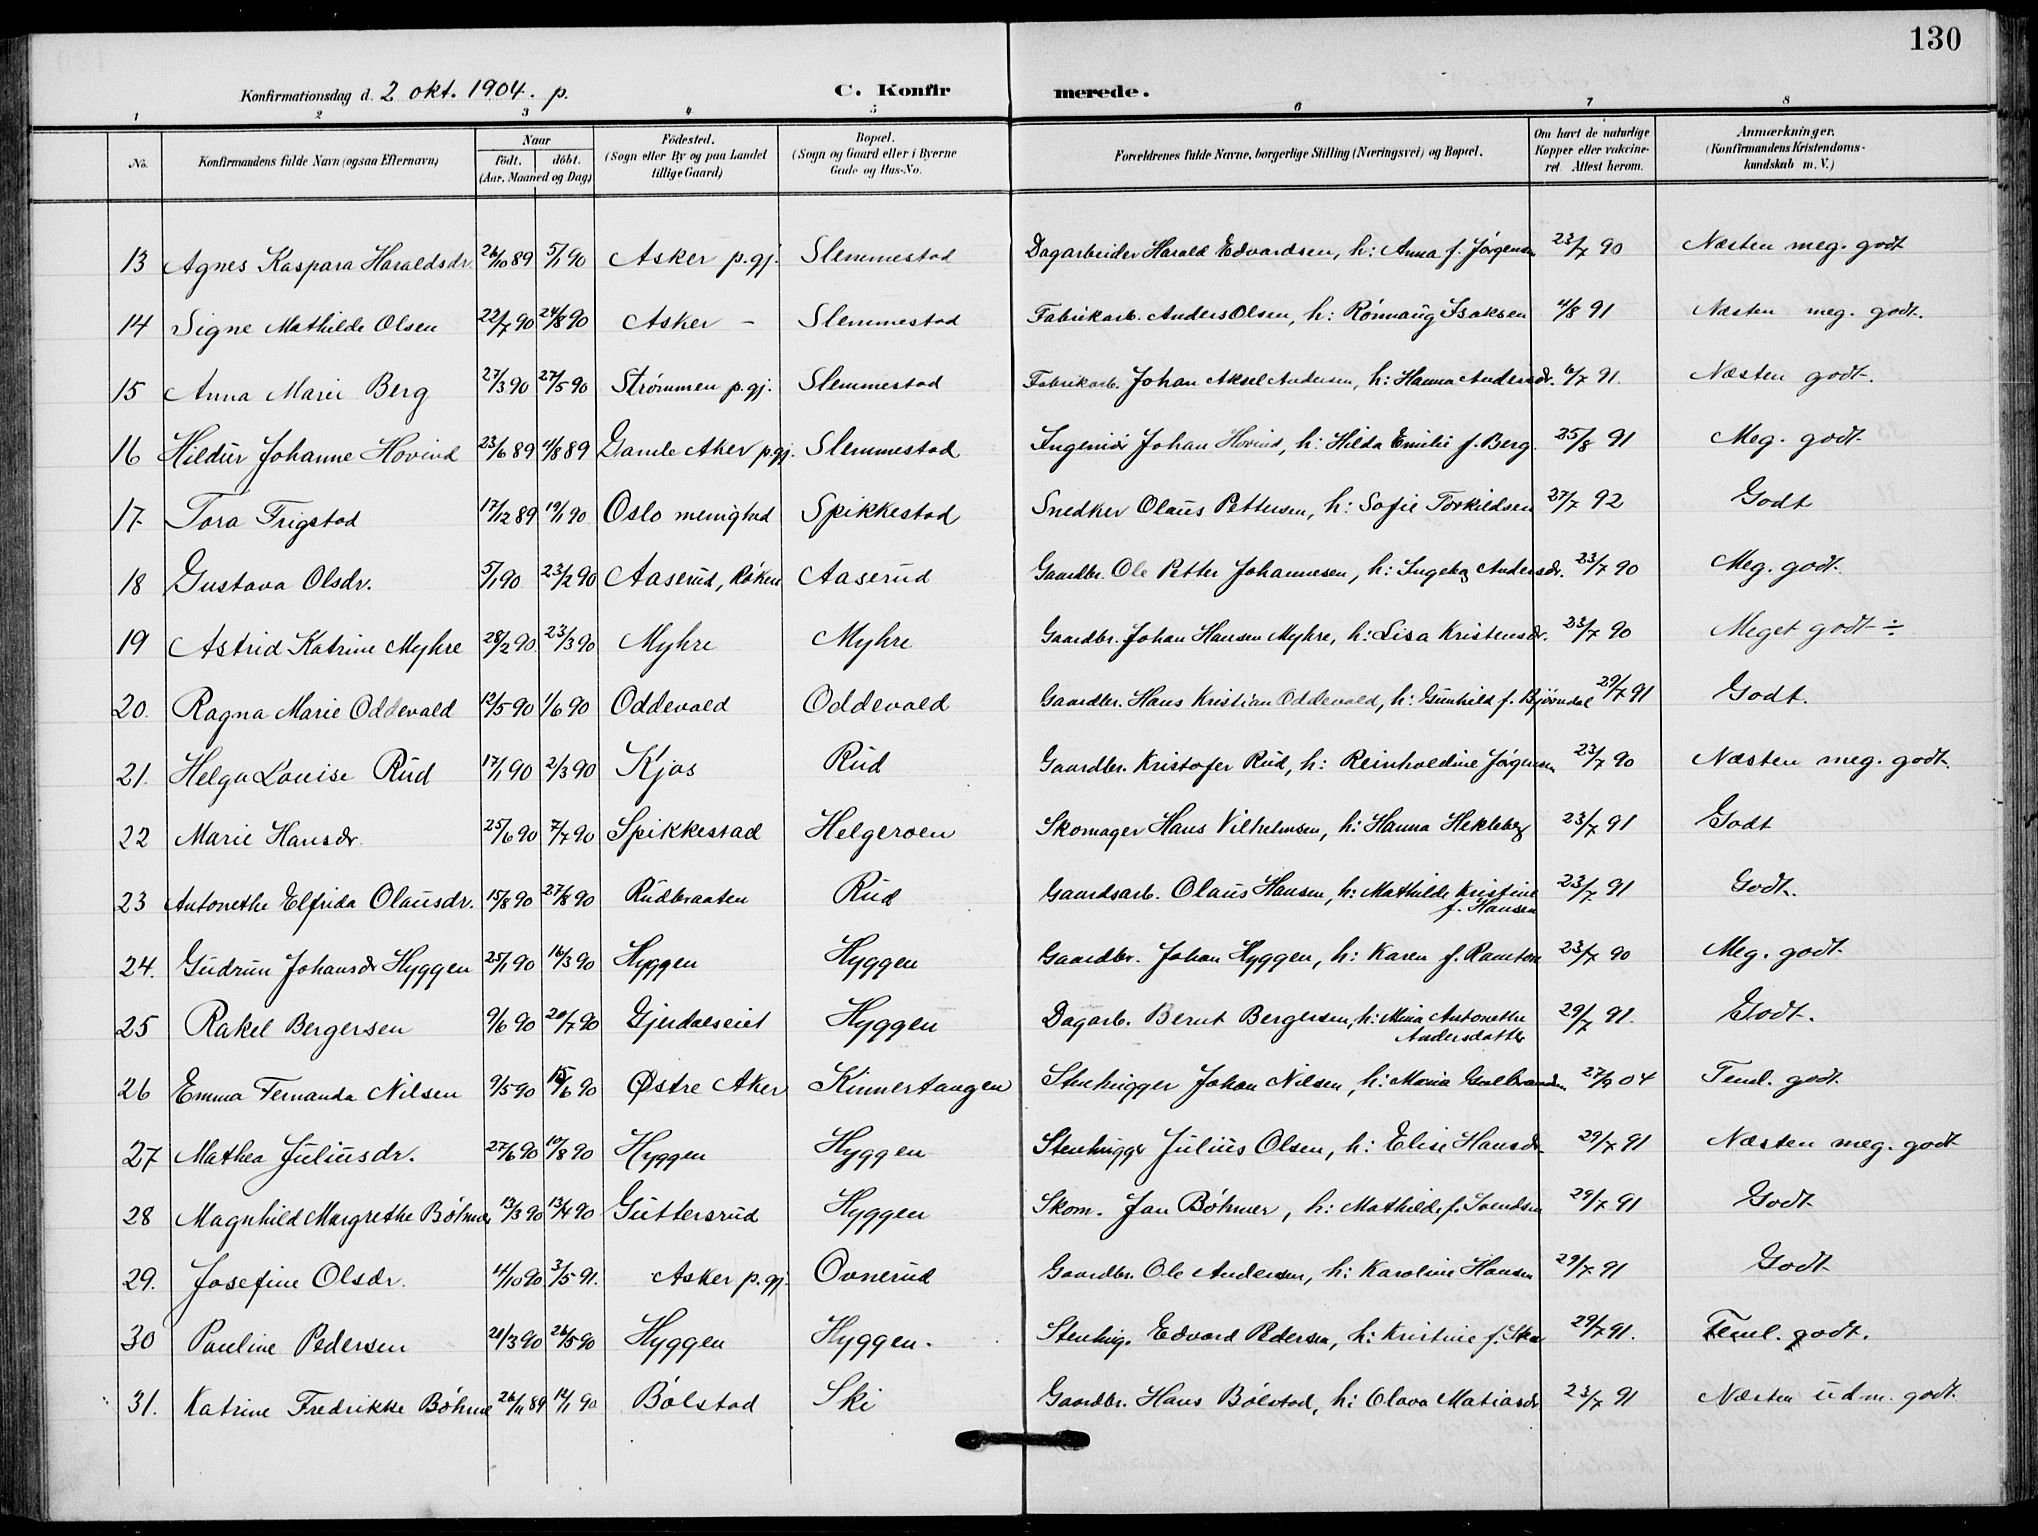 130
Konfirmationsdag d. 2 okt. 1904. p. C. Konfirmerede.
1 2 3 4 5 6 7 8
No. Konfirmandens fulde Navn (ogsaa Efternavn) Naar födt. döbt. (Aar, Maaned og Dag) Födested. (Sogn eller By og paa Landet tillige Gaard) Bopæl. (Sogn og Gaard eller i Byerne Gade og Hus-No. Forældrenes fulde Navne, borgerlige Stilling (Næringsvei) og Bopæl. Om havt de naturlige Kopper eller vakcineret. Attest herom. Anmærkninger. (Konfirmandens Kristendomskundskab m. V.)
13 Agnes Kaspara Haraldsdr. 26/10 89 5/1 90 Asker p.gj. Slemmestad Dagarbeider Harald Edvardsen, h: Anna f. Jørgensen 23/7 90 Næsten meg. godt
14 Signe Mathilde Olsen 22/7 90 24/8 90 Asker – Slemmestad Fabrikarb. Anders Olsen, h: Rønnaug Isaksen 4/8 91 Næsten meg. godt.
15 Anna Marie Berg 27/3 90 27/5 90 Strømmen p.gj. Slemmestad Fabrikarb. Johan Aksel Andersen, h: Hanna Andersdr. 6/7 91. Næsten godt.
16 Hildur Johanne Hovind 23/6 89 4/8 89 Gamle Aker p.gj. Slemmestad Ingeniør Johan Hovind, h: Hilda Emilie f. Berg. 25/8 91 Meg. godt
17. Tora Frigstad 17/12 89 19/1 90 Oslo menighed Spikkestad Snedker Olaus Pettersen, h: Sofie Torkildsen 27/7 92 Godt
18 Gustava Olsdr. 5/1 90 23/2 90 Aaserud, Røken Aaserud Gaardbr. Ole Petter Johannesen, h: Ingebg Andersdr. 23/7 90 Meg. godt.
19 Astrid Katrine Myhre 28/2 90 23/3 90 Myhre Myhre Gaardbr. Johan Hansen Myhre, h: Lisa Kristensdr. 23/7 90 Meget godt ÷
20. Ragna Marie Oddevald 12/5 90 1/6 90 Oddevald Oddevald Gaardbr. Hans Kristian Oddevald, h: Gunhild f. Bjørndal 29/7 91 Godt.
21. Helga Louise Rud 17/1 90 2/3 90 Kjos Rud Gaardbr. Kristofer Rud, h: Reinholdine Jørgensen 23/7 90 Næsten meg. godt.
22 Marie Hansdr. 25/6 90 7/7 90 Spikkestad Helgeroen Skomager Hans Vilhelmsen, h: Hanna Hekleberg 23/7 91 Godt
23 Antonethe Elfrida Olausdr. 15/8 90 27/8 90 Rudbraaten Rud Gaardsarb. Olaus Hansen, h: Mathilde Kristine 23/7 91 Godt.
f. Hansen
24. Gudrun Johansdr Hyggen 25/1 90 16/3 90 Hyggen Hyggen Gaardbr. Johan Hyggen, h: Karen f. Ramton 23/7 90 Meg. godt.
25 Rakel Bergersen 9/6 90 20/7 90 Gjerdalseiet Hyggen Dagarb. Bernt Bergersen, h: Mina Antonethe 29/7 91. Godt.
Andersdatter
26 Emma Fernanda Nilsen 9/5 90 15/6 90 Østre Aker Kinnertangen Stenhugger Johan Nilsen, h: Maria Gulbrandsn 27/9 04 Teml. godt.
27 Mathea Juliusdr. 27/6 90 10/8 90 Hyggen Hyggen Stenhugger Julius Olsen, h: Elise Hansdr. 29/7 91 Næsten meg. godt
28 Magnhild Margrethe Bøhmer 13/3 90 13/4 90 Guttersrud Hyggen Skom. Jan Bøhmer, h: Mathilde f. Svendsen 29/7 91 Godt
29. Josefine Olsdr. 14/10 90 3/5 91. Asker p.gj. Ovnerud Gaardbr. Ole Andersen, h: Karoline Hansen 29/7 91 Godt
30 Pauline Pedersen 20/3 90 26/5 90 Hyggen Hyggen. Stenhug. Edvard Pedersen, h: Kristine f. Skar 29/7 91. Teml. godt.
31. Katrine Fredrikke Bøhme 26/11 89 12/1 90 Bølstad Ski Gaardbr. Hans Bølstad, h: Olava Matiasdr. 23/7 91 Næsten udm. godt.